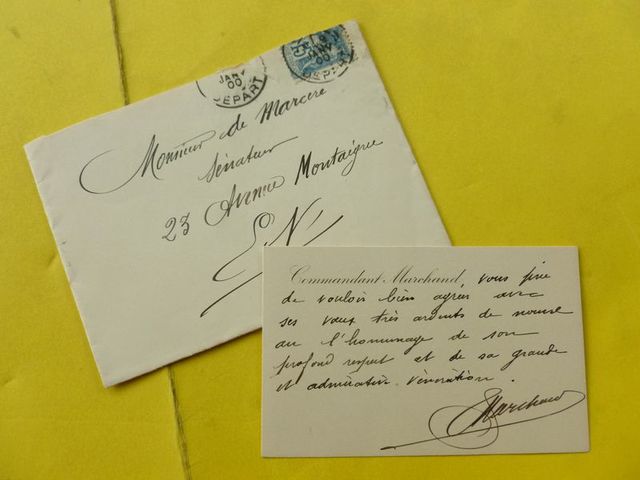 JANV
00
DEPART
JANV
00
DEPART
Monsieur de Marcère
Sénateur
23 Avenue Montaigne
E.V.
Commandant Marchand, vous prie
de vouloir bien agréer avec
ses vœux très ardents de nouvel
an l'hommage de son
profond respect et de sa grande
et admirative vénération.
Marchand